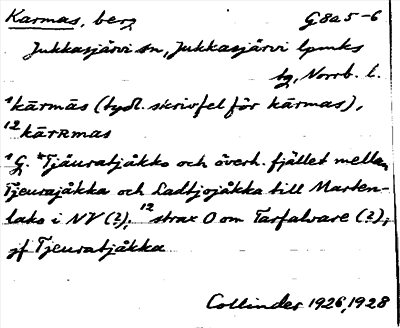 Karmas, berg G8a5-6
Jukkasjärvi sn, Jukkasjärvi lpmks
tg, Norrb. l.
¹kārmās (tydl. skrivfel för kärmas),
¹²kärʀmas
¹G. "Tjåuratjåkko och överh. fjället mellan
Tjeurajåkka och Ladtjojåkka till Marten-
laks i NV (?); ¹²strax O om Tarfalvare (?);
jf Tjeuratjåkka
Collinder 1926, 1928